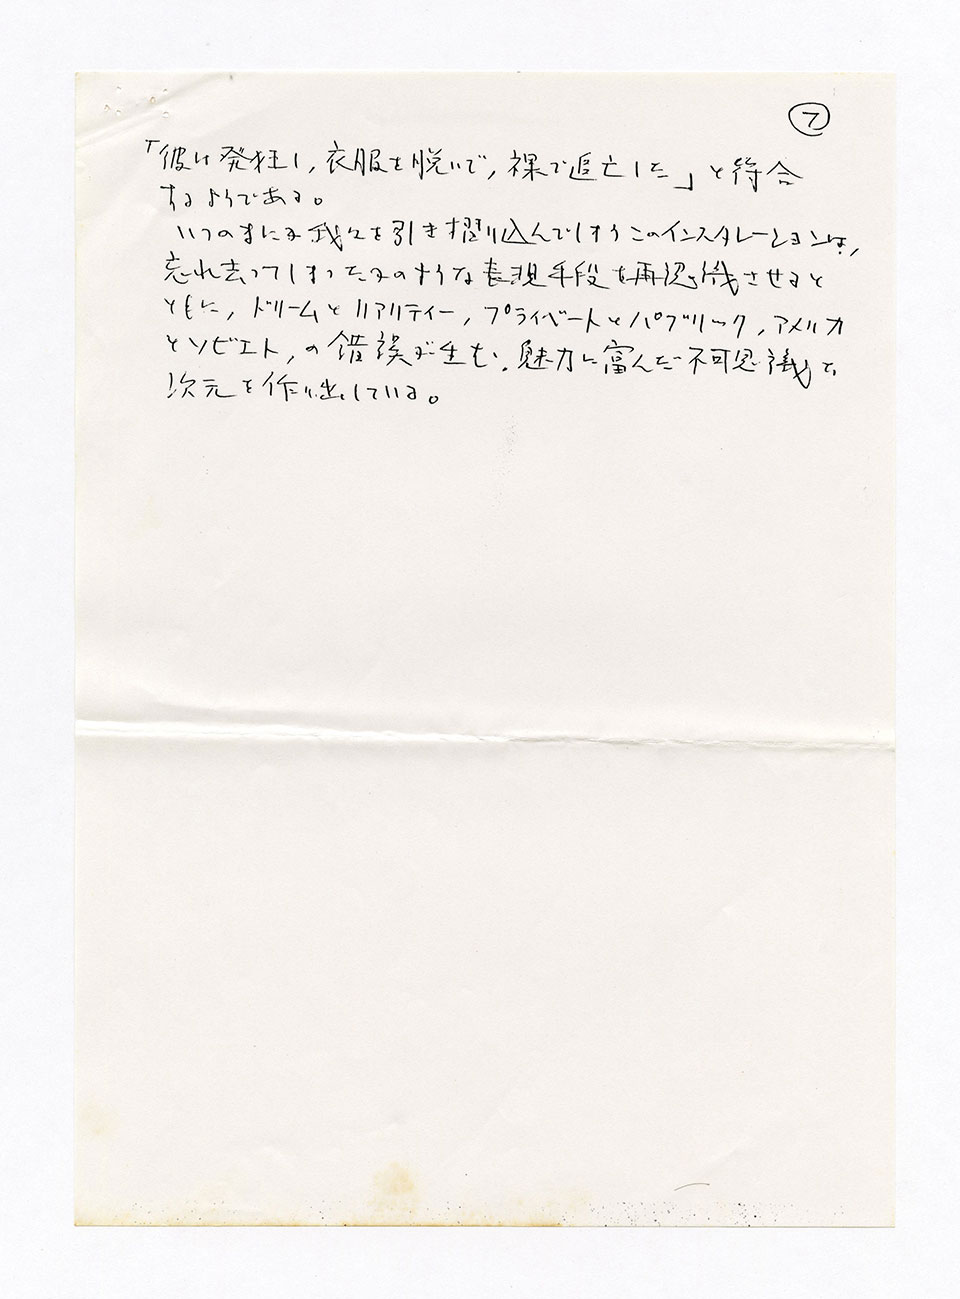 7
「彼は発狂し,衣服を脱いで,裸で追亡した」と符合
するようである。
いつのまにか我々を引き摺り込んでしまうこのインスタレーションは,
忘れ去ってしまったかのような表現手段を再認識させると
ともに,ドリームとリアリティー,プライベートとパブリック,アメリカ
とソビエト,の錯誤が生む,魅力に富んだ不可思議な
次元を作り出している。